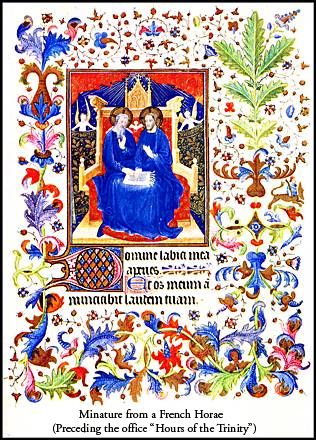 Domine labia mea
aperies Et os meum a
nunciabit laudem tuam.
Minature from a French Horae
(Preceding the office “Hours of the Trinity”)